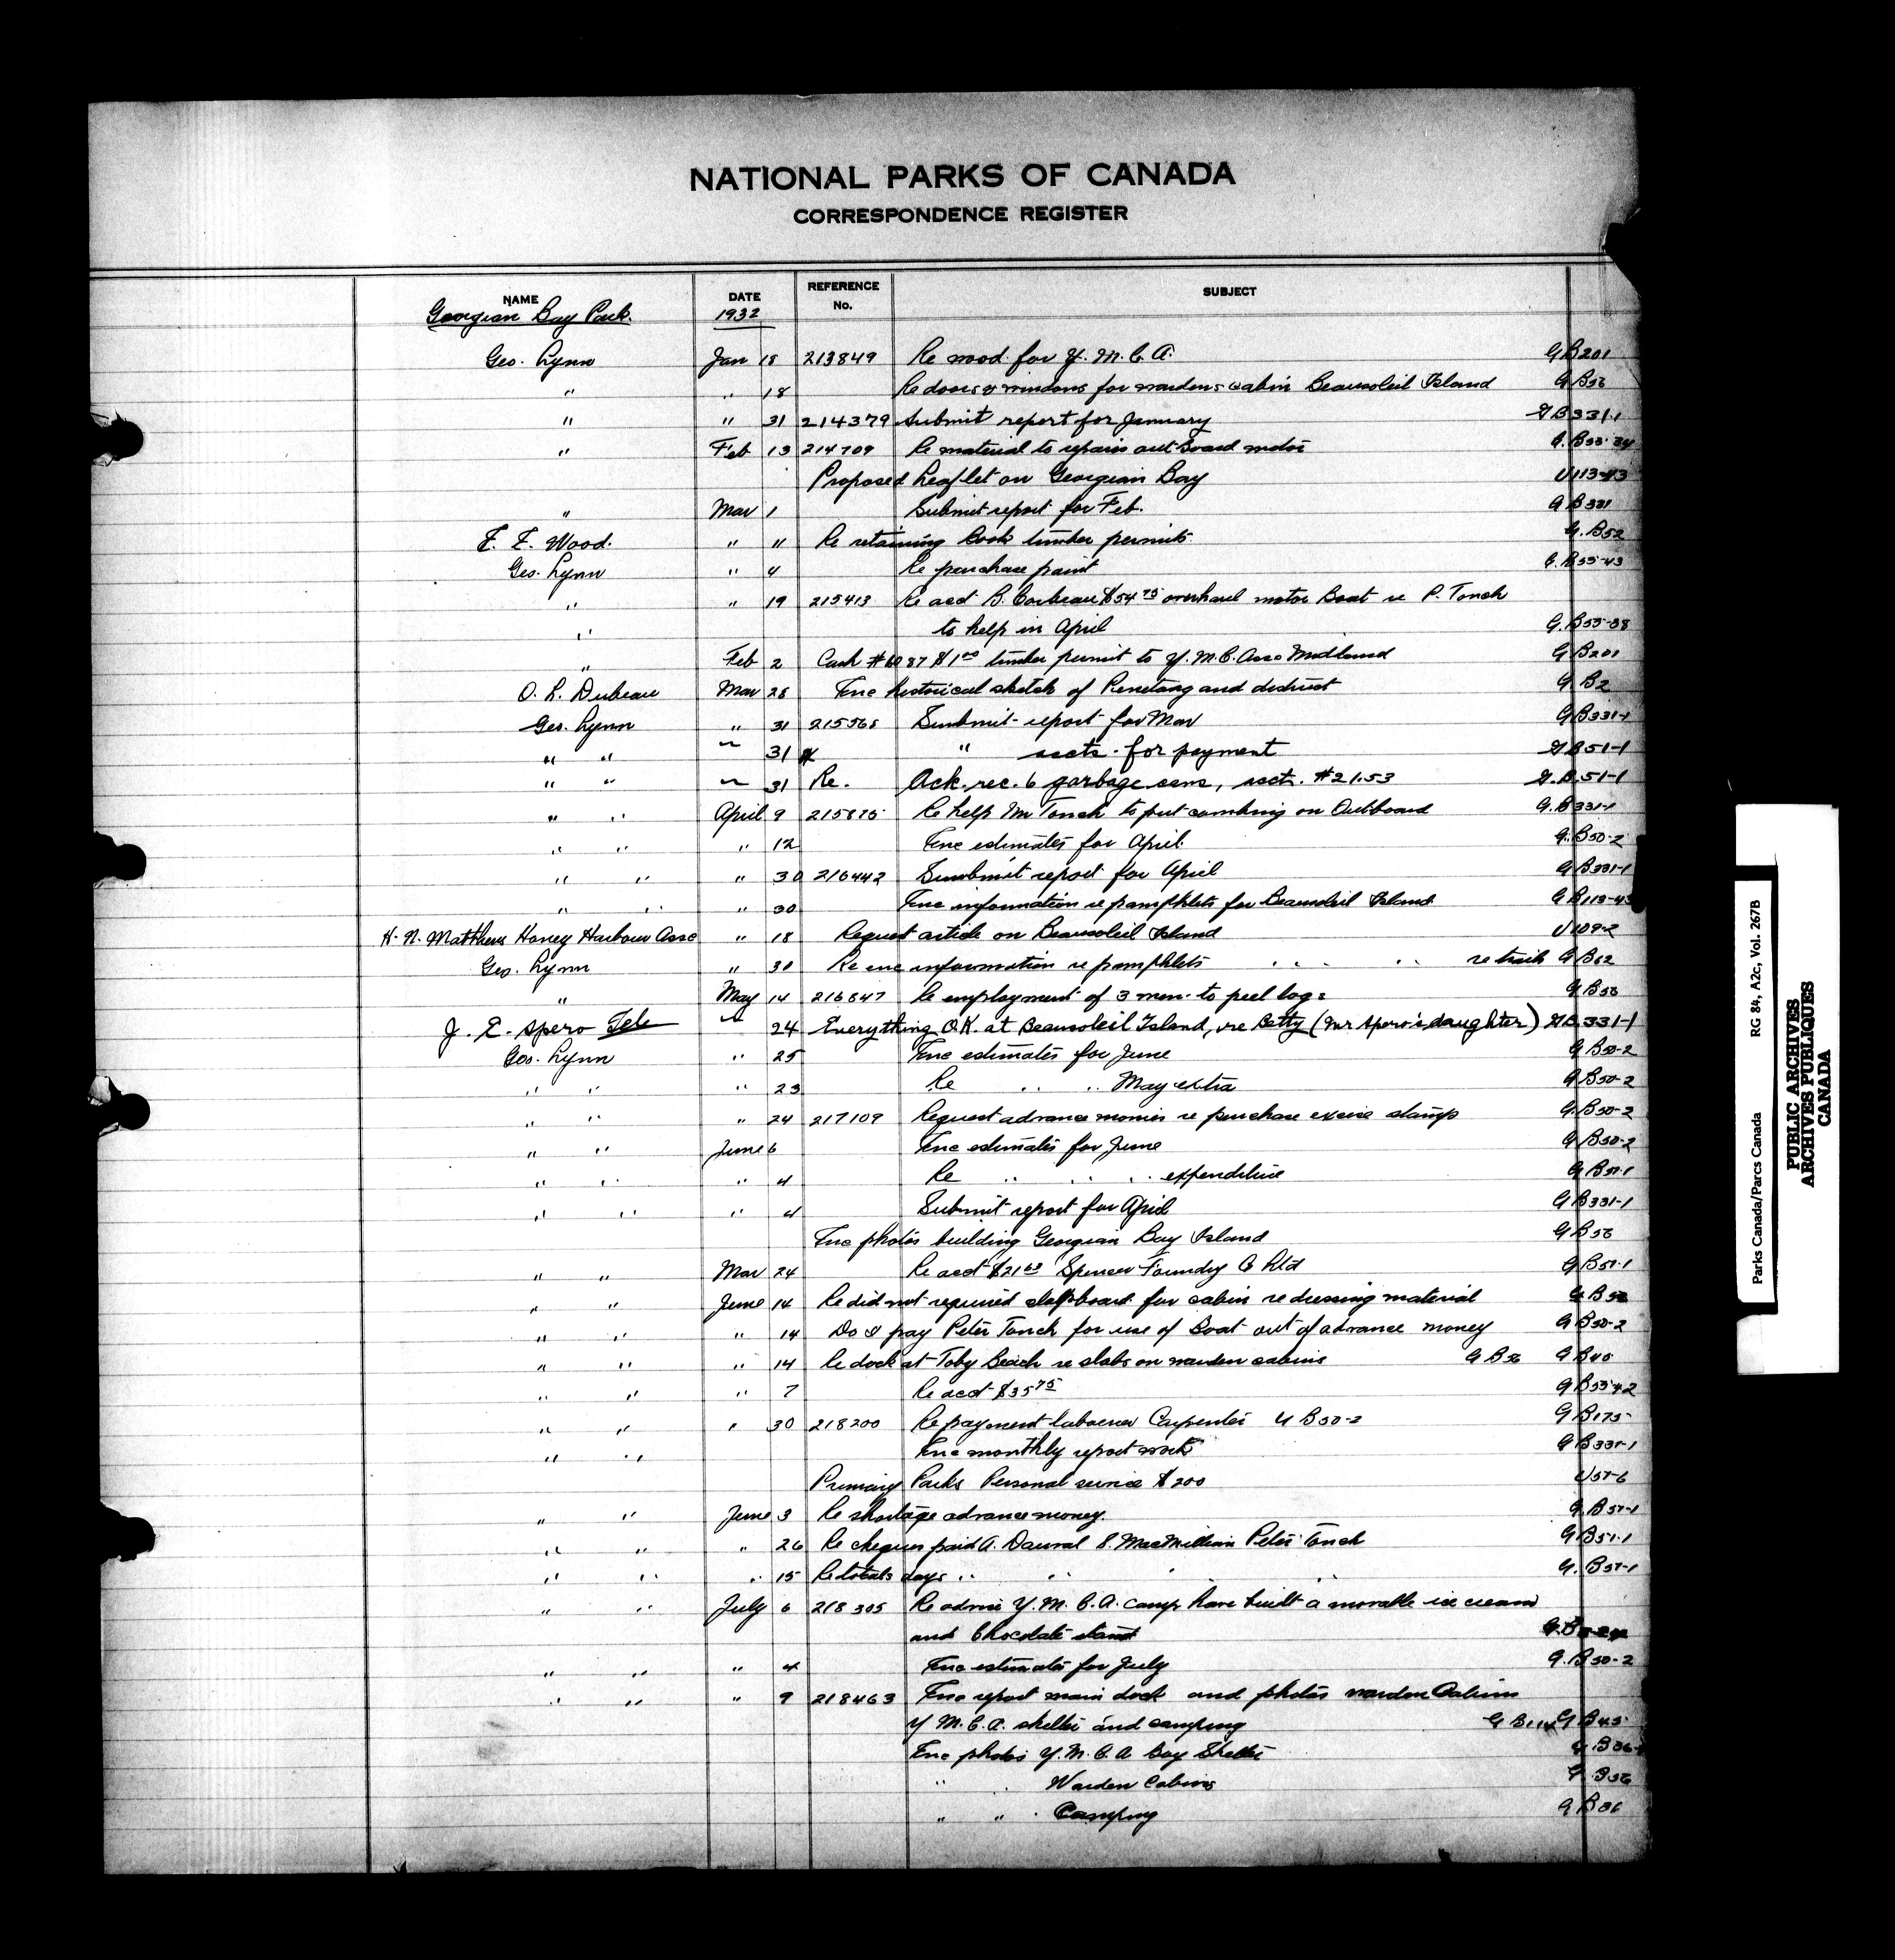 NATIONAL PARKS OF CANADA
CORRESPONDENCE REGISTER
NAME DATE REFERENCE No. SUBJECT
Georgian Bay Park. 1932
Geo. Lynn Jan 18 213849 Re wood for Y. M. C. A. G B 201
" " 18 Re doors & windows for wardens cabin Beausoleil Island G B 56
" " 31 214379 Submit report for January G B 331-1
" Feb 13 214709 Re material to repairs outboard motor G. B 55-34
Proposed Leaflet on Georgian Bay U 113-43
" Mar 1 Submit report for Feb. G B 331
F. F. Wood. " " Re retaining Book timber permits G. B 52
Geo. Lynn " 4 Re purchase paint G. B 55-43
" " 19 215413 Re acct B. Corbeau $54 75 overhaul motor Boat re P. Tonch
" to help in April G. B 55-38
" Feb 2 Cash # 87 $1 00 timber permit to Y. M. C. Asso Midland G B 201
O. L. Dubeau Mar 28 Enc historical sketch of Penetang and district G B 2
Geo. Lynn " 31 215565 Sumbmit report for Mar G B 331-1
" " " 31 " accts. for payment G B 51-1
" " " 31 Re. Ack. rec. 6 garbage cans, acct. #21.53 G. B. 51-1
" " April 9 215875 Re help Mr Tonch to put combing on Outboard G. B 331-1
" " " 12 Enc estimates for April. G. B 50-2
" " " 30 216442 Sumbmit report for April G B 331-1
" " " 30 Enc information re pamphlets for Beausoleil Island G B 113-43
H. N. Matthews Honey Harbour Asso " 18 Request article on Beausoleil Island U 109-2
Geo. Lynn " 30 Re enc information re pamphlets " " re trails G B 62
" May 14 216847 Re employment of 3 men to peel logs G B 56
J. E. Spero Tele " 24 Everything O.K. at Beausoleil Island, re Betty (Mr Spero's daughter) G B 331-1
Geo. Lynn " 25 Enc estimates for June G B 50-2
" " " 23 Re " " May extra G B 50-2
" " " 24 217109 Request advance monies re purchase excise stamps G. B 50-2
" " June 6 Enc estimates for June G B 50-2
" " " 4 Re " " " expenditure G B 51-1
" " " 4 Submit report for April G B 331-1
Enc photos building Georgian Bay Island G B 56
" " Mar 24 Re acct $21 63 Spencer Foundry Co Ltd G B 51-1
" " June 14 Re did not required clapboard for cabin re dressing material G B 56
" " " 14 Do I pay Peter Tonch for use of Boat out of advance money G B 50-2
" " " 14 Re dock at Toby Beach re slabs on warden cabins G B 56 G B 45
" " " 7 Re acct $35 75 G B 55-42
" " " 30 218200 Re payment labourer Carpenter G B 50-2 G B 175
" " Enc monthly report work G B 331-1
Primary Parks Personal service $200 U 51-6
" " June 3 Re shortage advance money. G. B 51-1
" " " 26 Re cheques paid A. S. MacMillian Peter Tonch G B 51-1
" " " 15 Re totals days " " " " G. B 51-1
" " July 6 218305 Re advise Y. M. C. A. camp have built a movable ice cream
and Chocolate stand
" " " 4 Enc estimates for July G. B 50-2
" " " 9 218463 Enc report main dock and photos warden Cabins
Y M. C. A. shelter and camping G B 114 G B 45
Enc photos Y. M. C. A Bay Shelter G B 36
" " Warden Cabins G B 56
" " " Camping G B 36
Parks Canada/Parcs Canada RG 84, A2c, Vol. 267B
PUBLIC ARCHIVES
ARCHIVES PUBLIQUES
CANADA